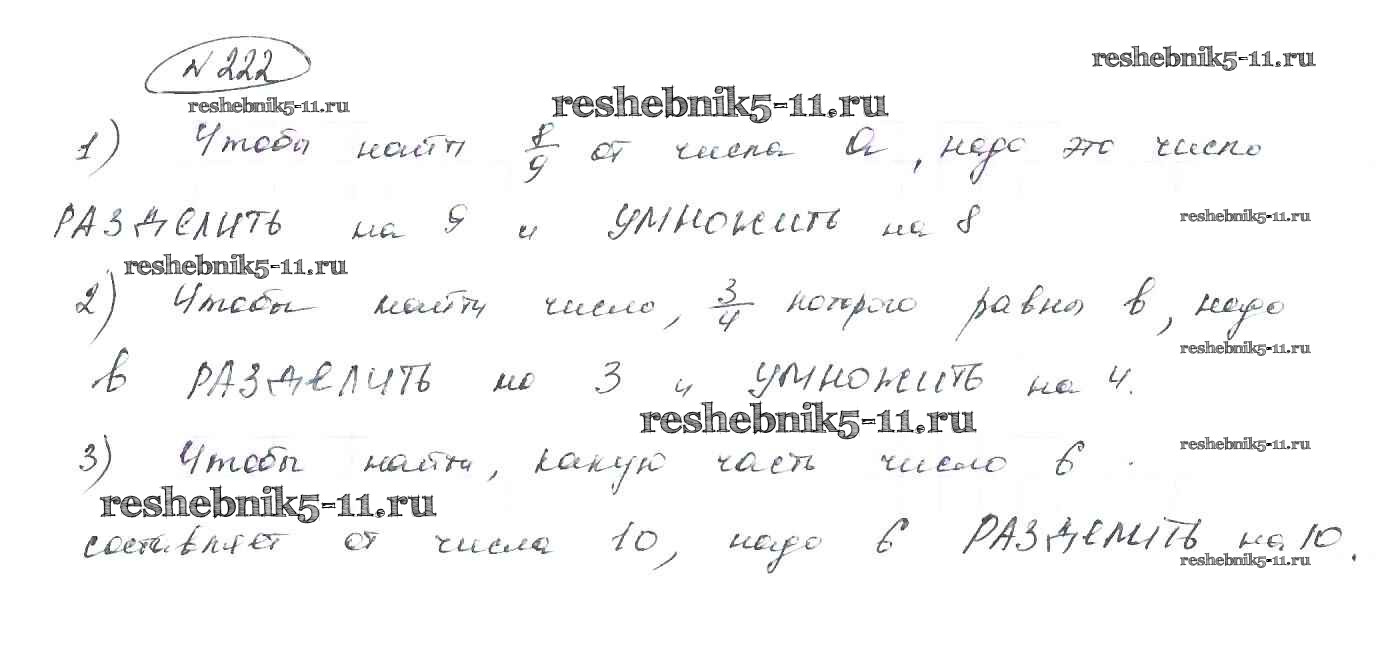 № 222
reshebnik5-11.ru
reshebnik5-11.ru
reshebnik5-11.ru
1) Чтобы найти 8/9 от числа a, надо это число
РАЗДЕЛИТЬ на 9 и УМНОЖИТЬ на 8
reshebnik5-11.ru
reshebnik5-11.ru
2) Чтобы найти число, 3/4 которого равны в, надо
reshebnik5-11.ru
в РАЗДЕЛИТЬ на 3 и УМНОЖИТЬ на 4.
reshebnik5-11.ru
3) Чтобы найти, какую часть число 6
reshebnik5-11.ru
reshebnik5-11.ru
составляет от числа 10, надо 6 РАЗДЕЛИТЬ на 10.
reshebnik5-11.ru